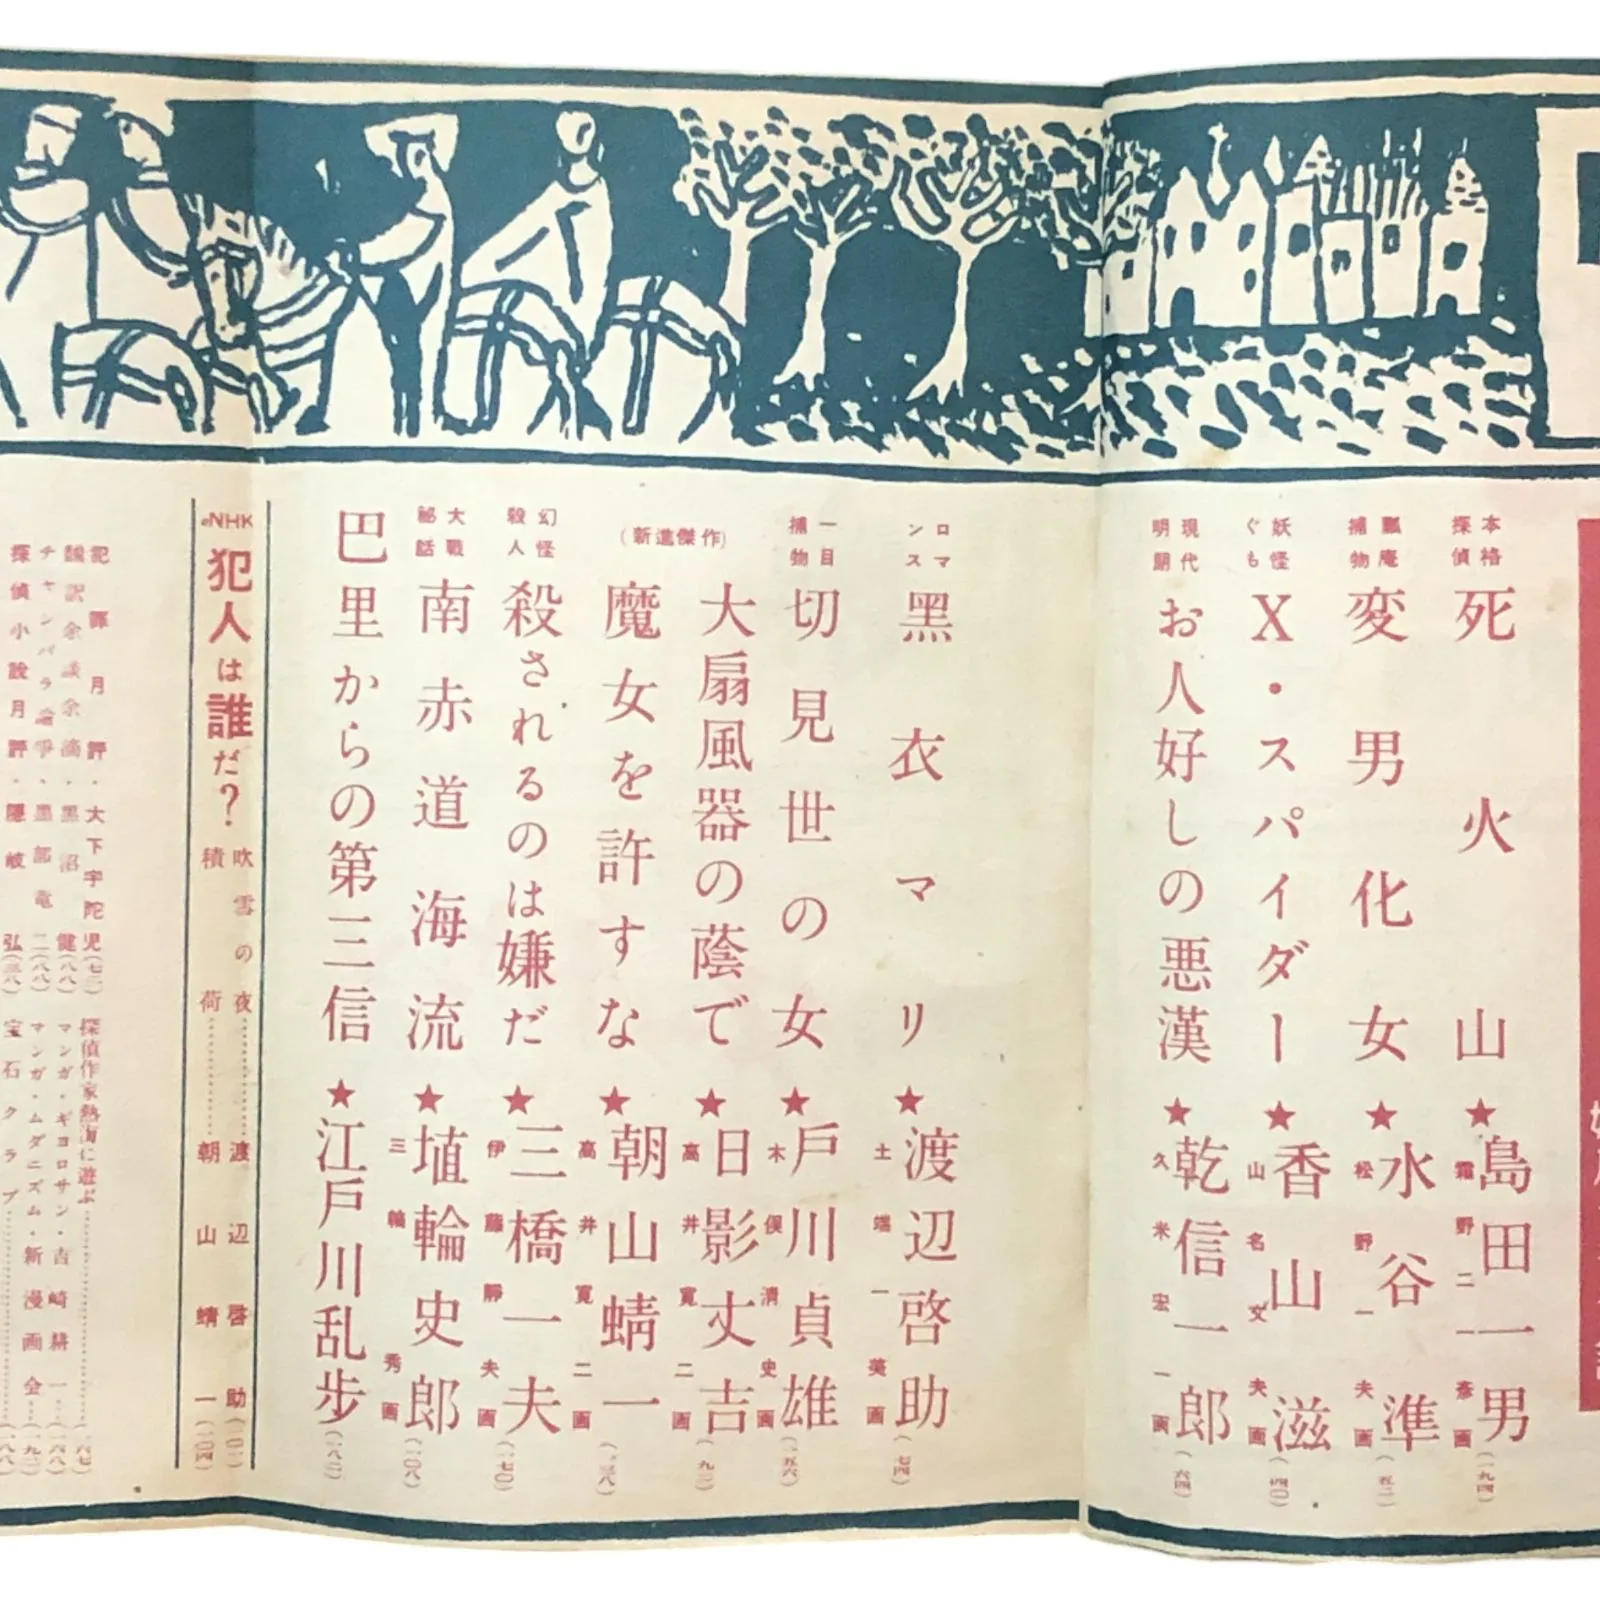 本格探偵 死火山★島田一男
霜野二一彦画
瓢庵捕物 変男化女★水谷準
松野一夫画
妖怪ぐも X・スパイダー★香山滋
山名文夫画
現代明朗 お人好しの悪漢★乾信一郎
久米宏一画(六四)
ロマンス 黑衣マリ★渡辺啓助
土端一美画(七四)
一目捕物 切見世の女★戸川貞雄
木俣清史画
(新進傑作)
大扇風器の蔭で★日影丈吉
高井寛二画
魔女を許すな★朝山蜻一
高井寛二画
幻怪殺人 殺されるのは嫌だ★三橋一夫
伊藤靜夫画
大戰秘話 南赤道海流★埴輪史郎
三輪秀画
巴里からの第三信★江戸川乱歩
NHK 犯人は誰だ?
吹雪の夜 渡辺啓助
積荷 朝山蜻一
犯罪月評・大下宇陀児
飜訳余談余滴・黒沼健
チャンバラ論爭・黒部竜二
探偵小說月評・隠岐弘
探偵作家熱海に遊ぶ
マンガ・ギヨロサン・吉崎耕一
マンガ・ムダニズム・新漫画会
宝石クラブ